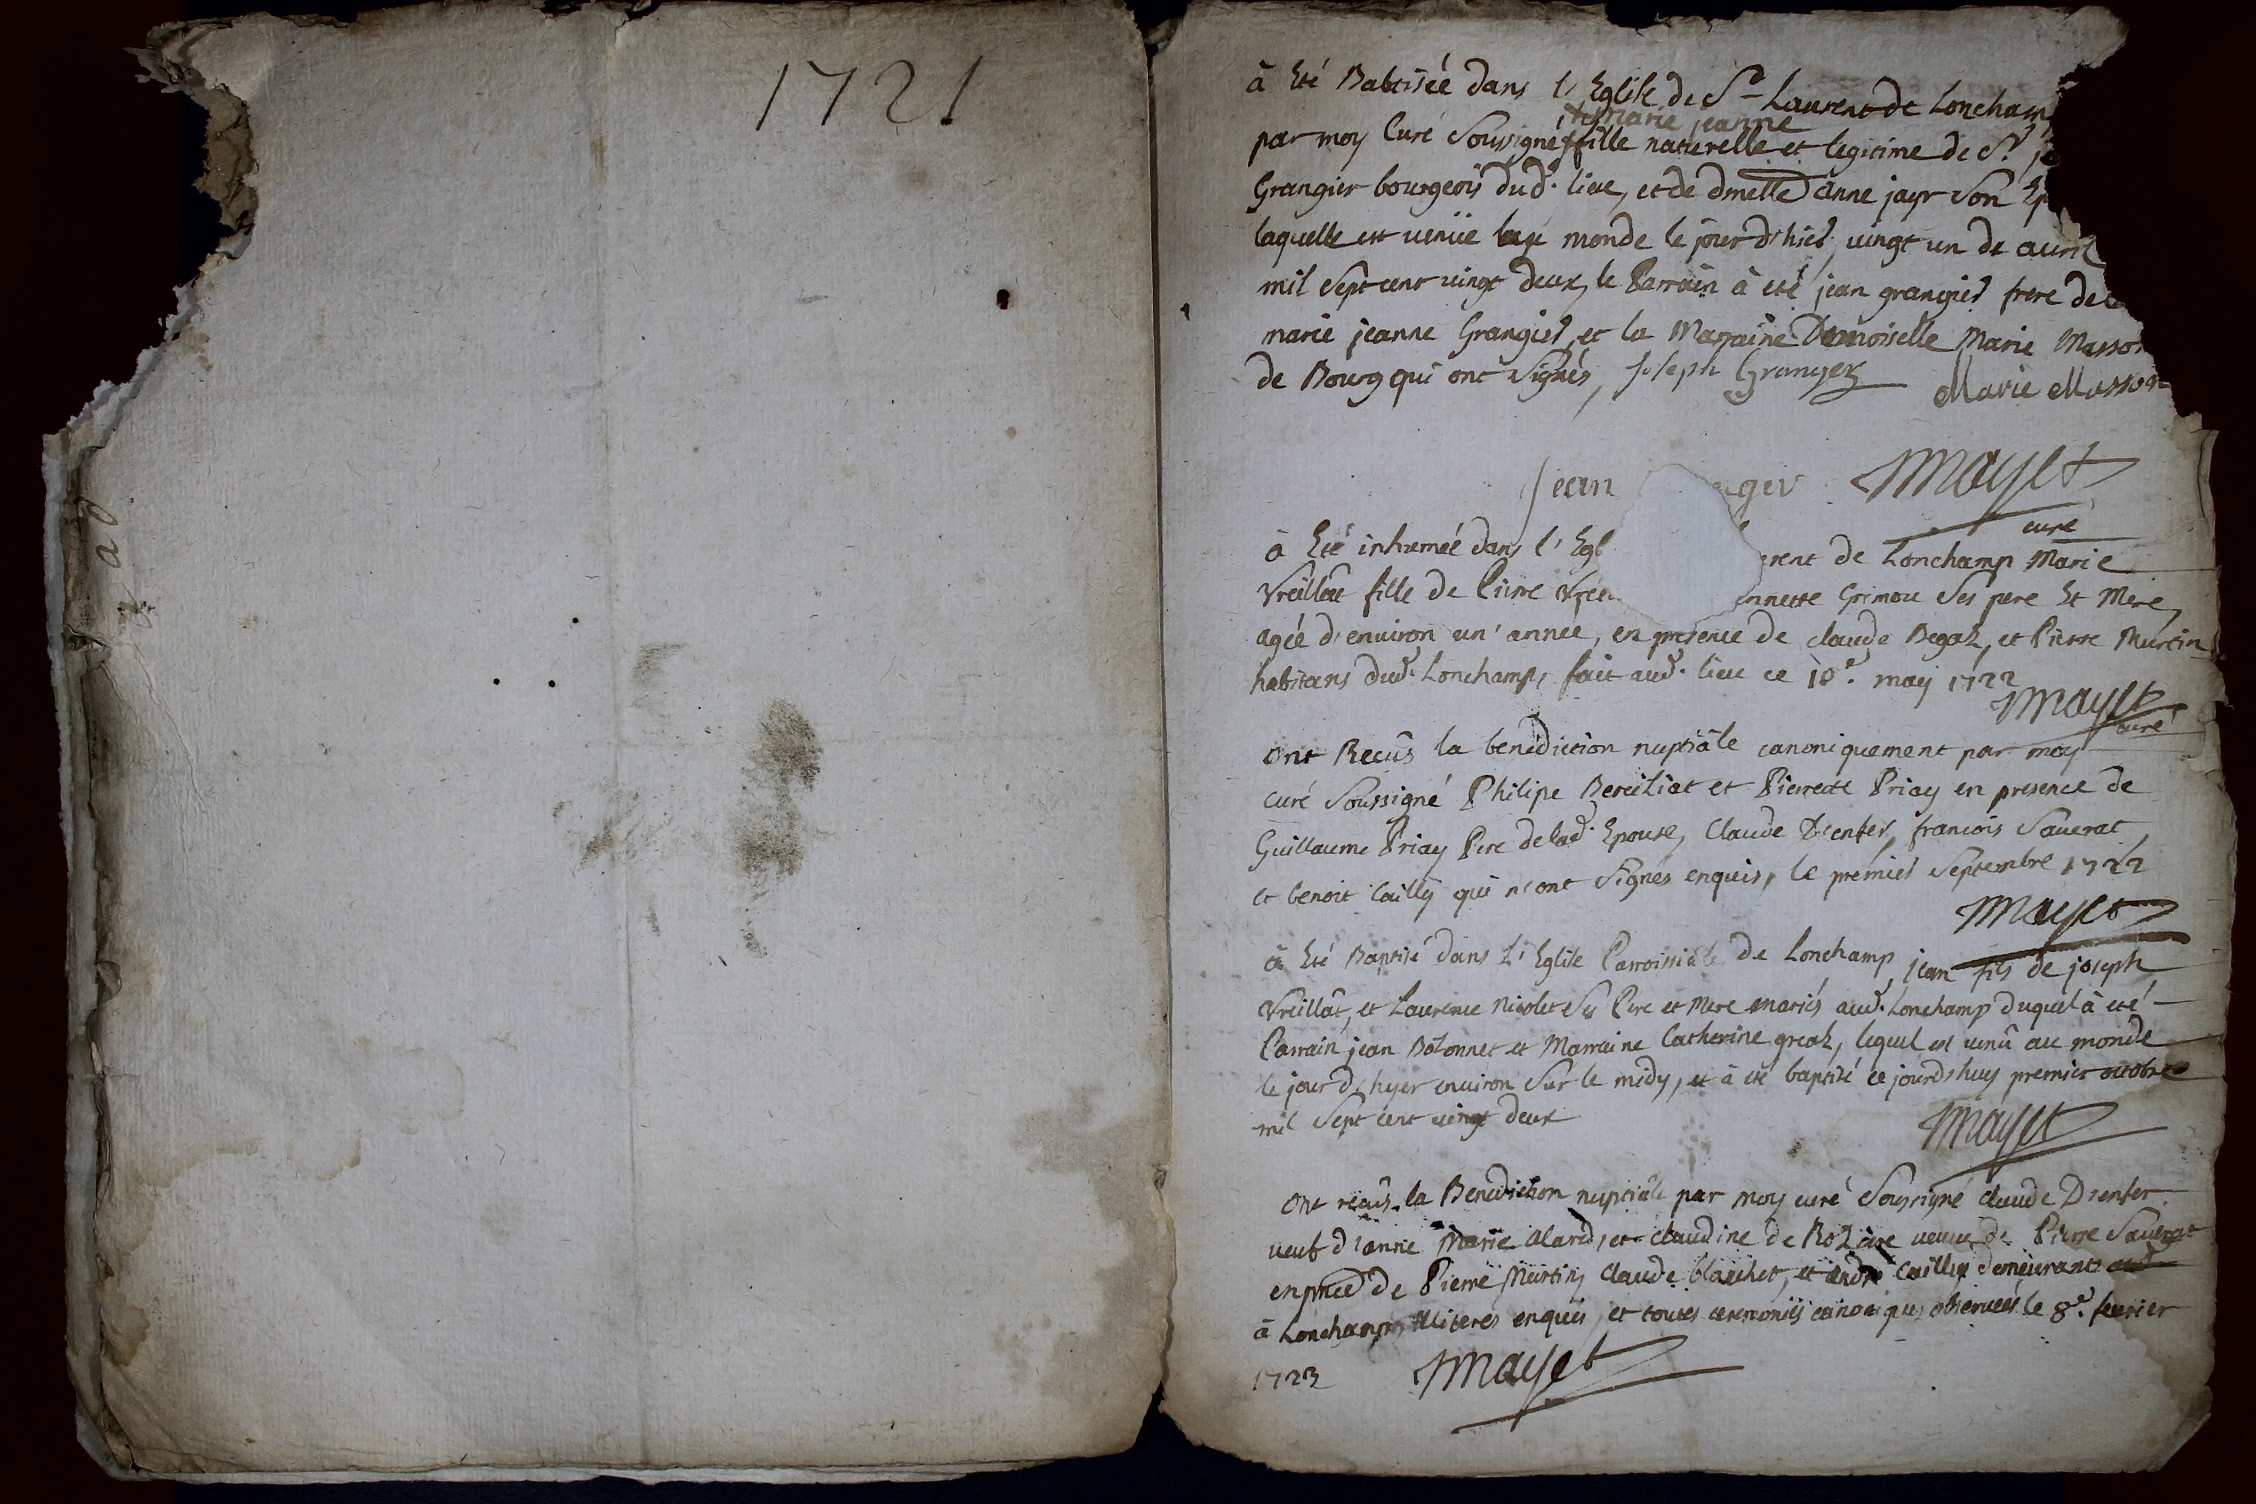 1721
à Eté Babtisée dans l'Eglise de St Laurent de Lonchamp
marie jeanne
par moy Curé Soussigné fille naturelle et legitime de Sr
Grangier bourgeois dud. lieu, et de dmelle anne jayr Son
laquelle est venüe au monde le jour d'hier, vingt un de avril
mil Sept cent vingt deux, le Parrain à eté jean grangier frere de
marie jeanne Grangier, et la Marraine Demoiselle Marie Masson
de Bourg qui ont Signés, Joseph Granger Marie Masson
Jean gier Mayet
curé
à Eté inhumée dans l'Egl rent de Lonchamp Marie
Vreillat fille de Pierre nnette Grimou Ses pere Et Mere,
agée d'environ un' année, en presence de claude Begoz, et Pierre Murtin
habitans dud. Lonchamp, fait aud. lieu ce 10e. may 1722
Mayet
curé
ont Recûs la benédiction nuptiâle canoniquement par moy
curé Soussigné Philipe Bereiliat et Pierrette Priay en presence de
Guillaume Priay Pere de lad. Epouse, Claude Drenfer, francois Sauerat,
et benoit Cailly qui n'ont Signés enquis, le prémier Septembre 1722
Mayet
à Eté Baptisé dans L'Eglise Parroissiale de Lonchamp, jean fils de joseph
Vreillat, et Laurence Nicolet Ses Pere et Mere mariés aud. Lonchamp duquel à eté
Parrain jean Bozonnet et Marraine Catherine greoz, lequel est venû au monde
le jour d'hyer environ Sur le midy, et à eté baptisé ce jourd'huy premier octobre
mil Sept cent vingt deux
Mayet
Ont reçûs la Benediction nuptiale par moy curé Soussigné claude Drenfer
veuf d'anne Marie Alard, et claudine de Roziere veuve de Pierre Sauerat
en pnce de Pierre Murtin, Claude blanchet, et andré Cailly demeurants
à Lonchamp, illiteres enquis, et toutes ceremonies canoniques observées le 8e. feurier
1723 Mayet